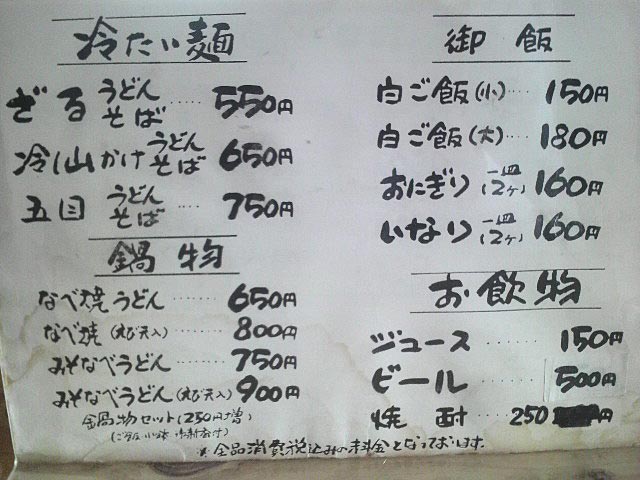 冷たい麺
ざる うどん そば ····· 550円
冷し山かけ うどん そば 650円
五目 うどん そば ···· 750円
鍋物
なべ焼うどん ······ 650円
なべ焼(えび天入) ···· 800円
みそなべうどん ···· 750円
みそなべうどん(えび天入) 900円
鍋物セット(250円増)
(ご飯・小鉢・付)
御飯
白ご飯(小) ··· 150円
白ご飯(大) ··· 180円
おにぎり 一皿(2ヶ) 160円
いなり 一皿(2ヶ) 160円
お飲物
ジュース 150円
ビール 500円
焼酎 ···· 250円
※全品消費税込みの料金となっております。